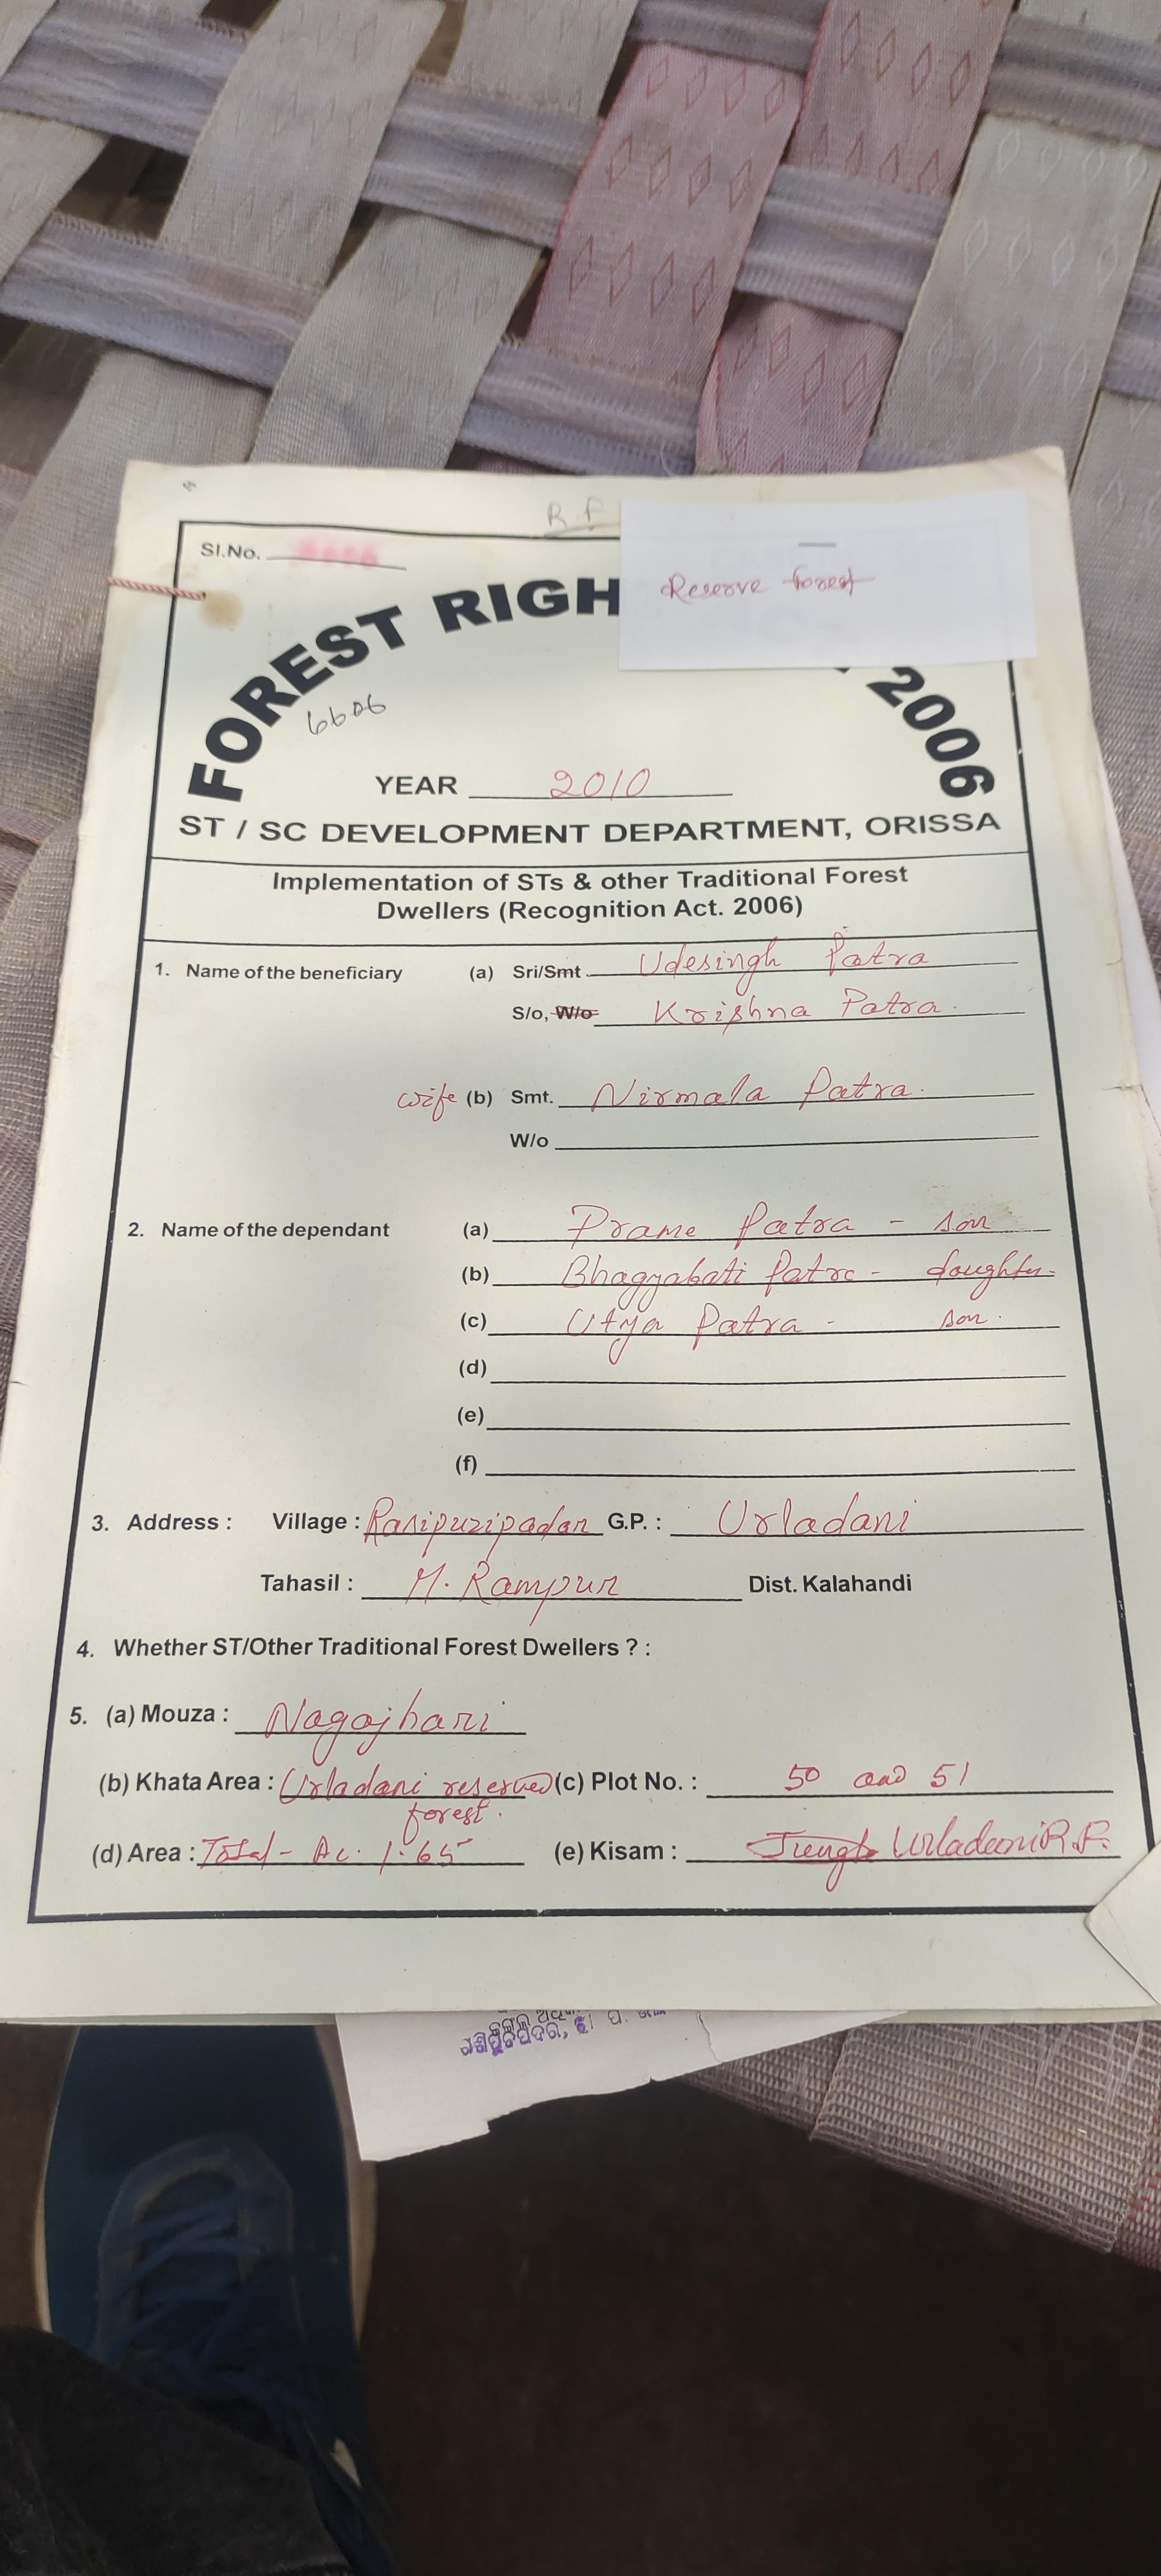 R.F
Reserve forest
Sl.No.
FOREST RIGH 2006
6606
YEAR 2010
ST / SC DEVELOPMENT DEPARTMENT, ORISSA
Implementation of STs & other Traditional Forest
Dwellers (Recognition Act. 2006)
1. Name of the beneficiary (a) Sri/Smt Udesingh Patra
S/o, W/o Krishna Patra.
wife (b) Smt. Nirmala Patra.
W/o
2. Name of the dependant (a) Prame Patra - son
(b) Bhagyabati Patra - daughter
(c) Utya Patra - son.
(d)
(e)
(f)
3. Address : Village : Ranipuripadar G.P. : Urladani
Tahasil : M. Rampur Dist. Kalahandi
4. Whether ST/Other Traditional Forest Dwellers ? :
5. (a) Mouza : Nagajhari
(b) Khata Area : Urladani reserved (c) Plot No. : 50 and 51
forest.
(d) Area : Total - Ac. 1.65 (e) Kisam : Urladani R.F.